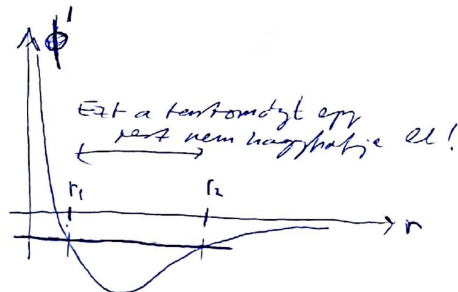 ϕ'
Ezt a tartományt egy
test nem hagyhatja el!
r₁ r₂
r